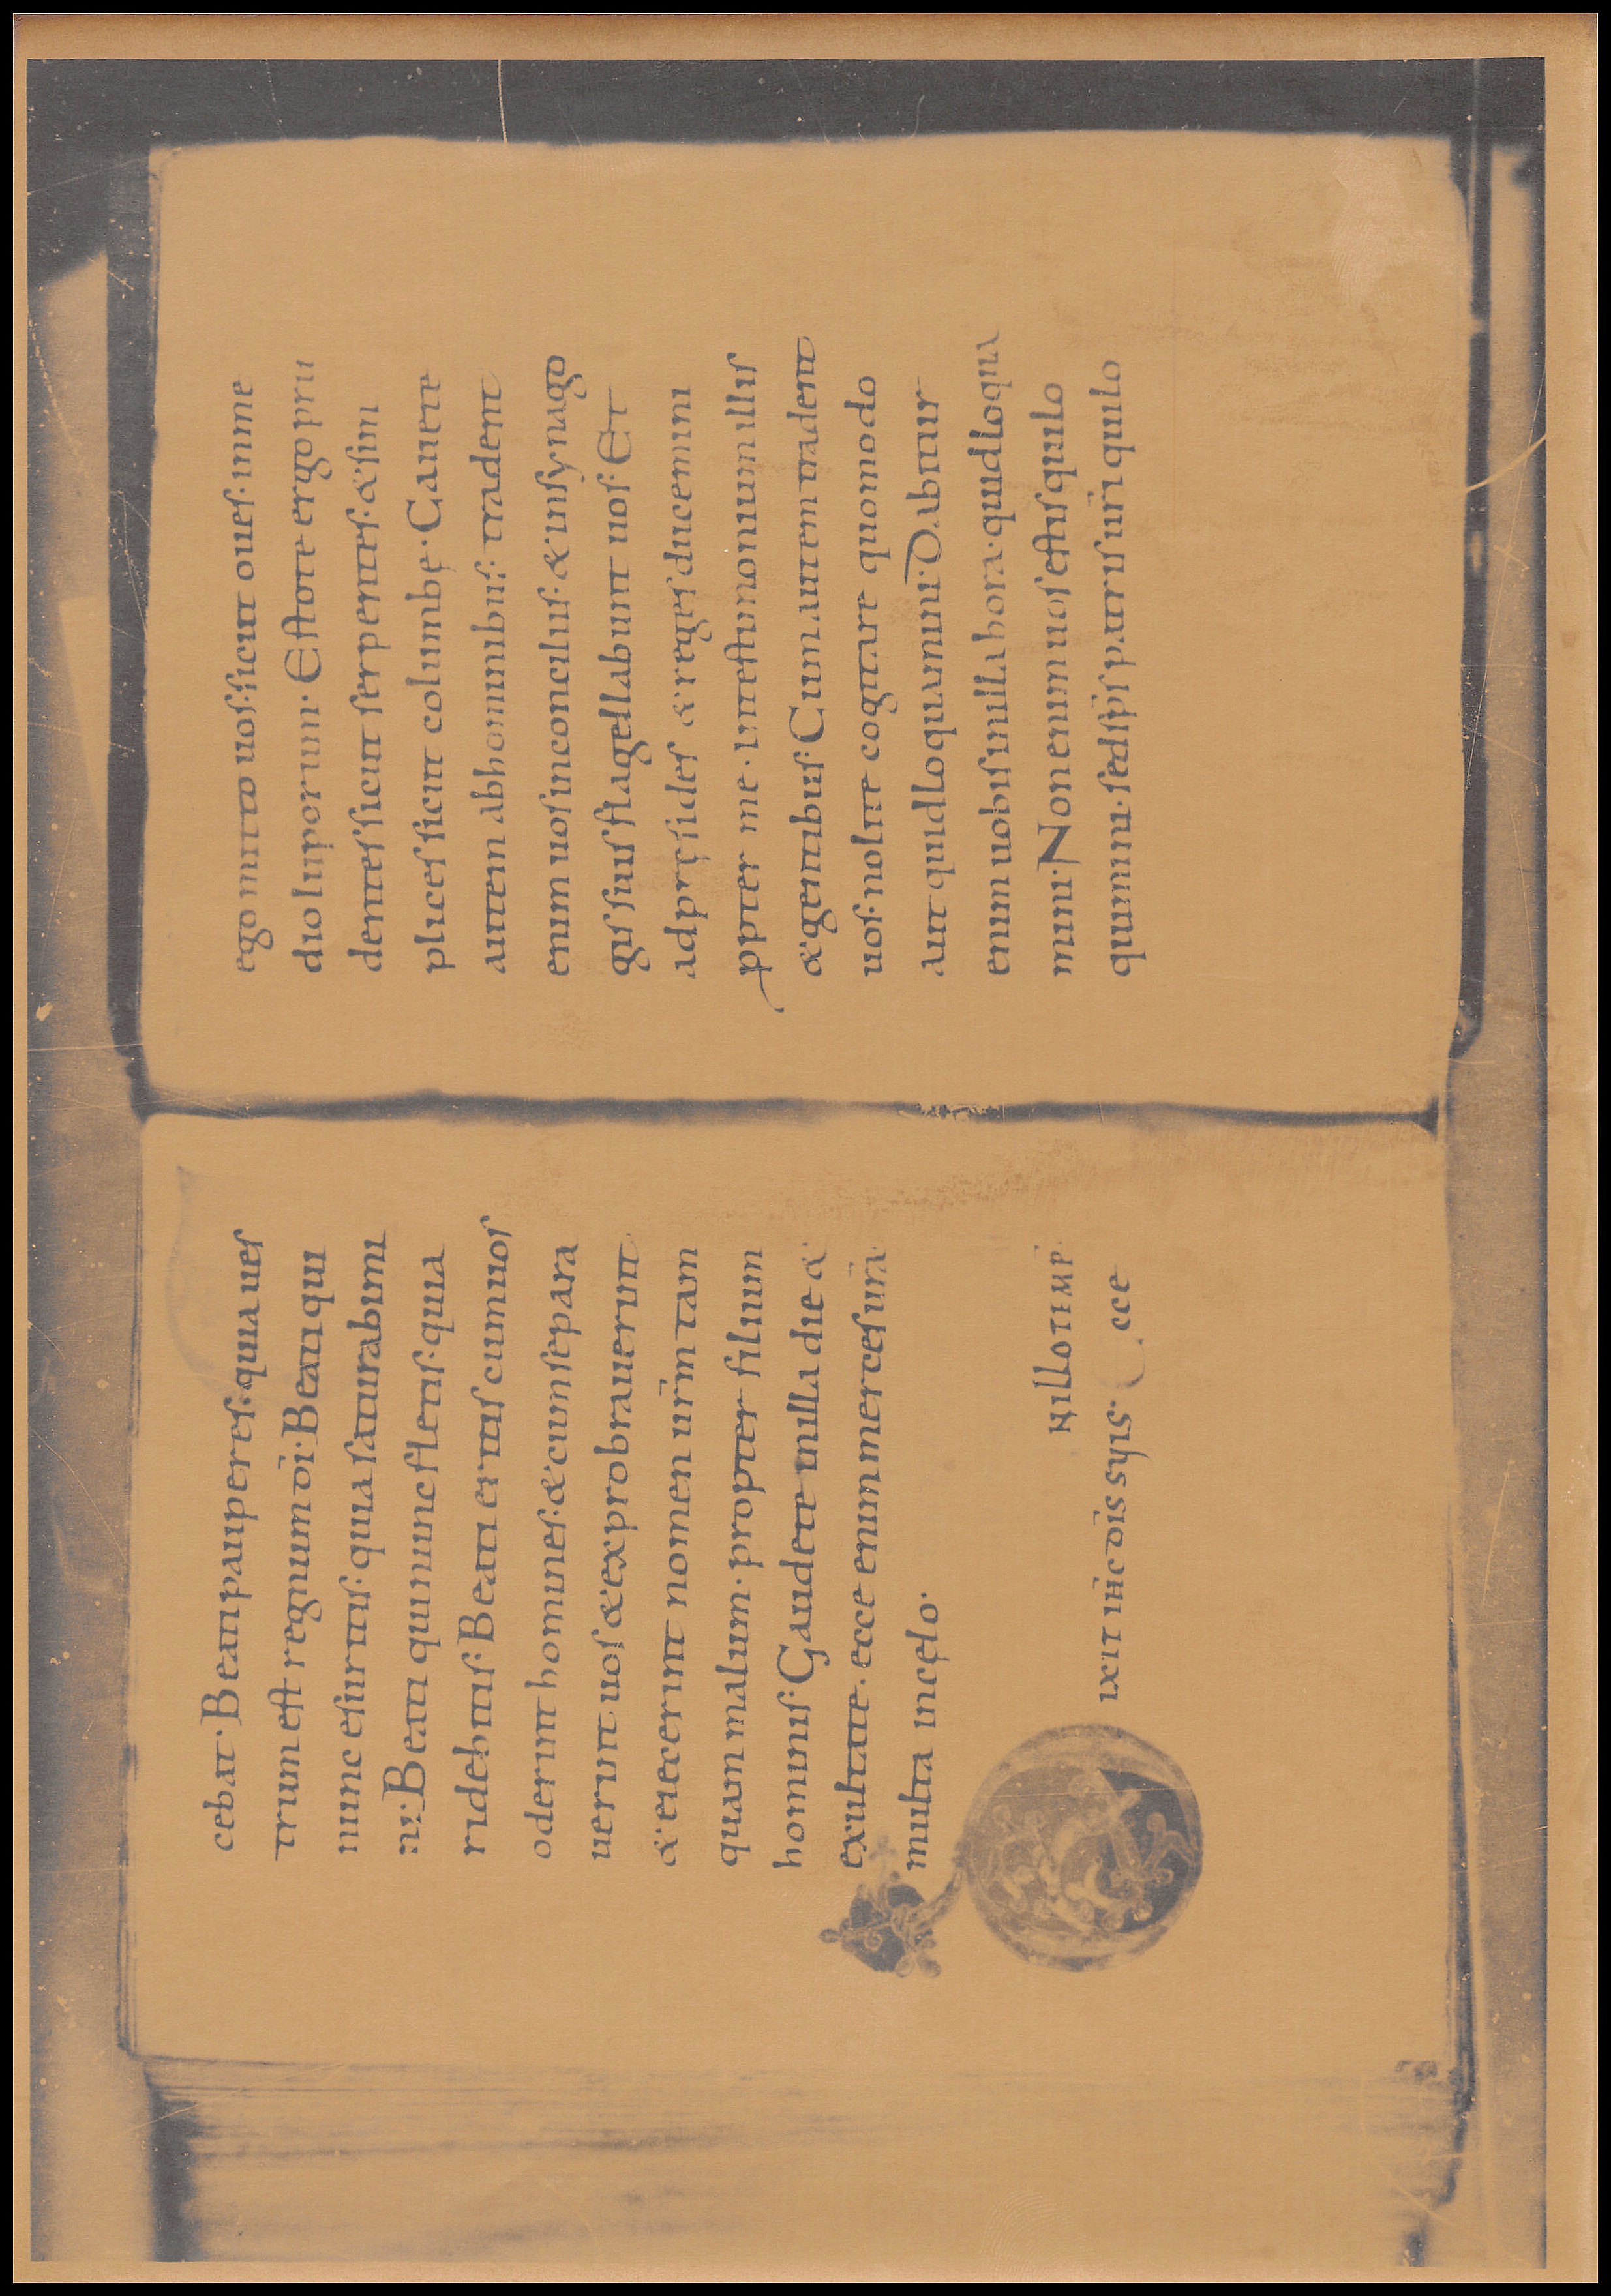 cebat· Beati pauperes· quia ues
trum est regnum dī· Beati qui
nunc esuritis· quia saturabimi
ni· Beati qui nunc fletis· quia
ridebitis· Beati eritis cum uos
oderint homines· & cum separa
uerint uos & exprobrauerint
& eiecerint nomen urm̄ tam
quam malum· propter filium
hominis· Gaudete in illa die &
exultate· ecce enim merces urā
multa in cęlo·
IN ILLO TIMP
IXIT IHC̄ DIS SYIS· Ecce
ego mitto uos· sicut oues· in me
dio luporum· Estote ergo pru
dentes sicut serpentes· & sim
plices sicut columbę· Cauete
autem ab hominibus· tradent
enim uos in conciliis· & in synago
gis suis flagellabunt uos· Et
ad pręsides & reges ducemini
ppter me· in testimonium illis
& gentibus· Cum autem tradent
uos· nolite cogitare quomodo
aut quid loquamini· Dabitur
enim uobis in illa hora· quid loqua
mini· Non enim uos estis qui lo
quimini· sed sps̄ patris urī qui lo